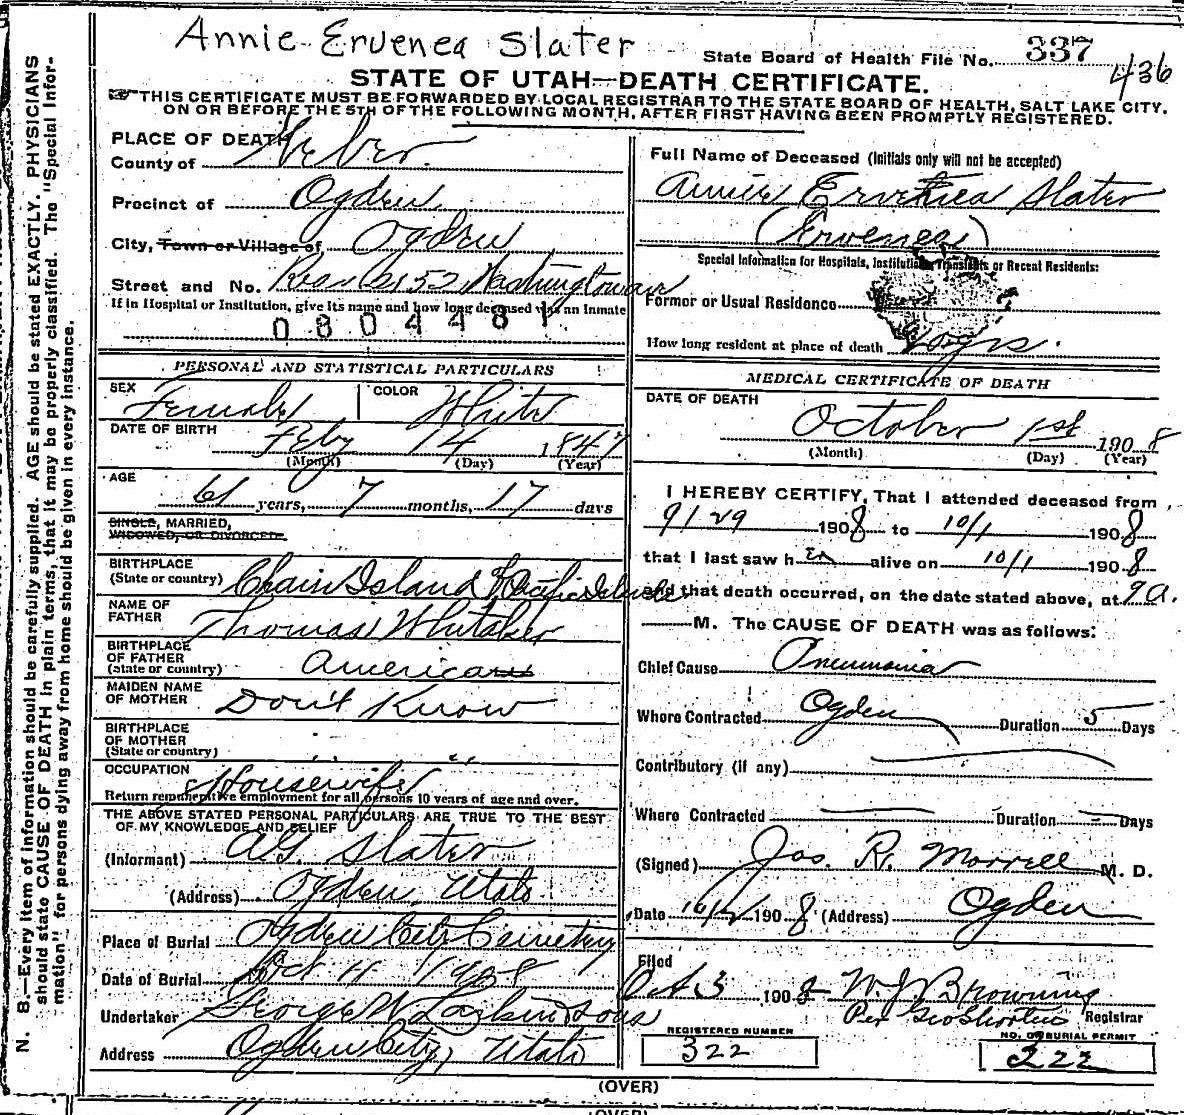 Annie Ervenea Slater
State Board of Health File No. 337
436
STATE OF UTAH—DEATH CERTIFICATE.
THIS CERTIFICATE MUST BE FORWARDED BY LOCAL REGISTRAR TO THE STATE BOARD OF HEALTH, SALT LAKE CITY.
ON OR BEFORE THE 5TH OF THE FOLLOWING MONTH, AFTER FIRST HAVING BEEN PROMPTLY REGISTERED.
N. B.—Every item of information should be carefully supplied. AGE should be stated EXACTLY. PHYSICIANS
should state CAUSE OF DEATH in plain terms, that it may be properly classified. The "Special Infor-
mation" for persons dying away from home should be given in every instance.
PLACE OF DEATH
County of Weber
Precinct of Ogden
City, Town or Village of Ogden
Street and No. 2152 Washington ave
If in Hospital or Institution, give its name and how long deceased was an Inmate
0804481
PERSONAL AND STATISTICAL PARTICULARS
SEX Female COLOR White
DATE OF BIRTH Feby 14 1847
(Month) (Day) (Year)
AGE
61 years, 7 months, 17 days
SINGLE, MARRIED,
WIDOWED, OR DIVORCED
BIRTHPLACE
(State or country) Chain Island Pacific Islands
NAME OF
FATHER Thomas Whitaker
BIRTHPLACE
OF FATHER
(State or country) American
MAIDEN NAME
OF MOTHER Don't Know
BIRTHPLACE
OF MOTHER
(State or country) " "
OCCUPATION Housewife
Return remunerative employment for all persons 10 years of age and over.
THE ABOVE STATED PERSONAL PARTICULARS ARE TRUE TO THE BEST
OF MY KNOWLEDGE AND BELIEF
(Informant) A.G. Slater
(Address) Ogden, Utah
Place of Burial Ogden City Cemetery
Date of Burial Oct 4 1908
Undertaker George W Larkin & Sons
Address Ogden City, Utah
Full Name of Deceased (Initials only will not be accepted)
Annie Ervenea Slater
(Ervenea)
Special Information for Hospitals, Institutions, Transients or Recent Residents:
Former or Usual Residence
How long resident at place of death yrs.
MEDICAL CERTIFICATE OF DEATH
DATE OF DEATH
October 1st 1908
(Month) (Day) (Year)
I HEREBY CERTIFY, That I attended deceased from
9/29 1908 to 10/1 1908
that I last saw h er alive on 10/1 1908
and that death occurred, on the date stated above, at 9 a.
M. The CAUSE OF DEATH was as follows:
Chief Cause Pneumonia
Where Contracted Ogden Duration 5 Days
Contributory (if any)
Where Contracted Duration Days
(Signed) Jos. R. Morrell M. D.
Date 10/2 1908 (Address) Ogden
Filed
Oct 3 1908 W. J. Browning
Per Geo Shorten Registrar
REGISTERED NUMBER
322
NO. OF BURIAL PERMIT
322
(OVER)
(OVER)